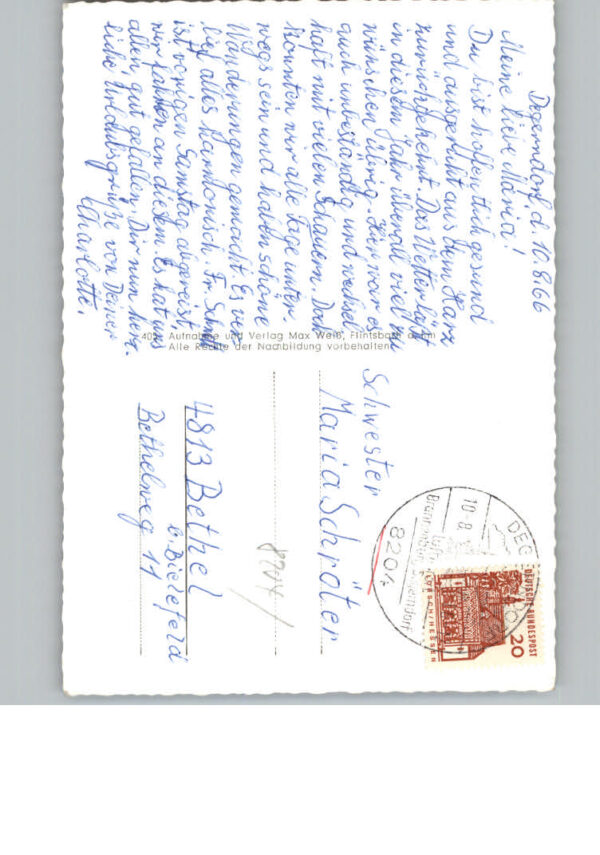 Degerndorf, d. 10.8.66
Meine liebe Maria!
Du bist hoffentlich gesund
und ausgeruht aus dem Harz
zurückgekehrt. Das Wetter läßt
in diesem Jahr überall viel zu
wünschen übrig. Hier war es
auch unbeständig und wechsel
haft mit vielen Schauern. Doch
konnten wir alle Tage unter
wegs sein und haben schöne
Wanderungen gemacht. Es ver
lief alles harmonisch. Fr.
ist vorigen Samstag abgereist,
wir fahren an diesem. Es hat uns
allen gut gefallen. Dir nun herz
liche Urlaubsgrüße von Deiner
Charlotte.
Aufnahme und Verlag Max Weiß, Flintsbach
Alle Rechte der Nachbildung vorbehalten
Schwester
Maria Schröter
4813 Bethel
b. Bielefeld
Bethelweg 11
8204
DEG
10.-8.
8204
DEUTSCHE BUNDESPOST
20
LORSCH/HESSEN